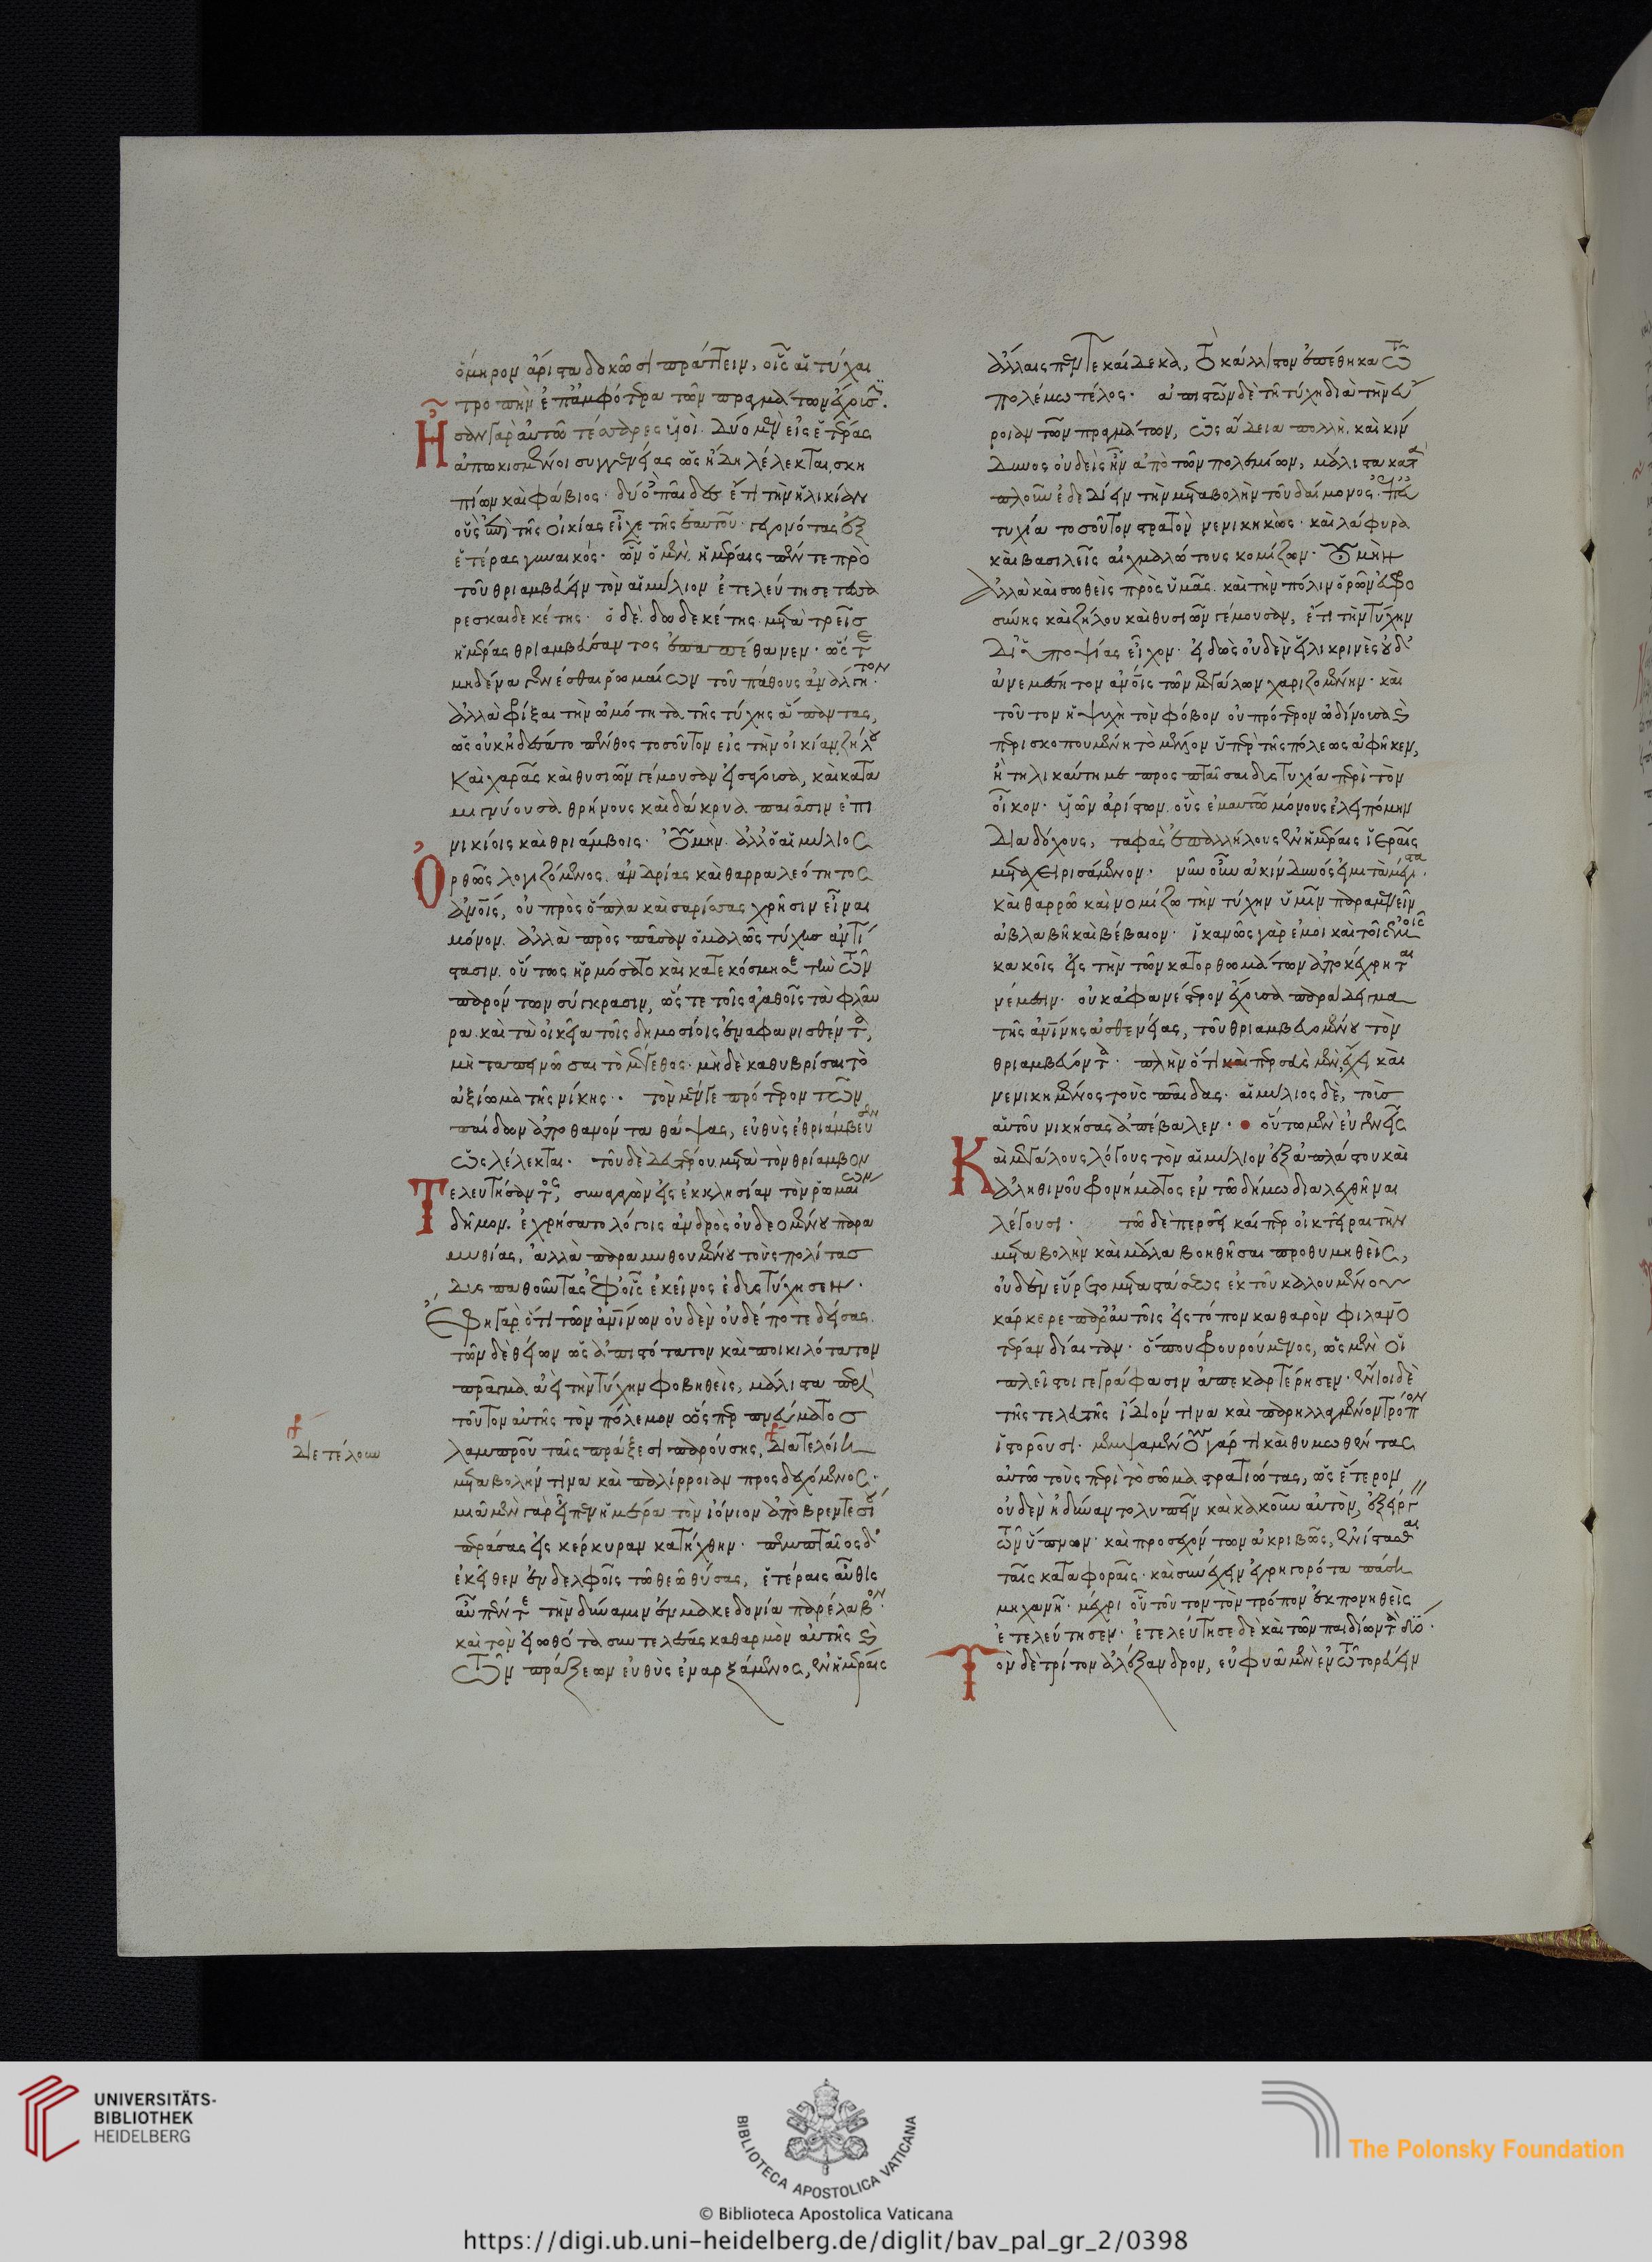 ὅμηρον ἄριστα δοκῶσι πράττειν, οἷς αἱ τύχαι
τροπὴν ἐπ' ἀμφότερα τῶν πραγμάτων ἔχουσιν.
Ἦσαν γὰρ αὐτῶ τέσσαρες υἱοὶ. δύο μὲν εἰς ἑτέρας
ἀπωκισμένοι συγγενείας ὡς ἤδη λέλεκται, σκη
πίων καὶ φάβιος· δύο παῖδες ἔτι τὴν ἡλικίαν
οὓς ἐπὶ τῆς οἰκίας εἶχε τῆς ἑαυτοῦ· γεγονότας ἐξ
ἑτέρας γυναικός· ὧν ὁ μὲν, ἡμέραις πέντε πρὸ
τοῦ θριαμβεύειν τὸν αἰμίλιον ἐτελεύτησε τεσσα
ρεσκαιδεκέτης· ὁ δὲ, δωδεκέτης μετὰ τρεῖς
ἡμέρας θριαμβεύσαντος ἐπαπέθανεν· ὥστε
μηδένα γενέσθαι ῥωμαίων τοῦ πάθους ἀνάλγητον·
ἀλλὰ φρίξαι τὴν ὠμότητα τῆς τύχης ἅπαντας,
ὡς οὐκ ἠδέσατο πένθος τοσοῦτον εἰς τὴν οἰκίαν ζήλου
καὶ χαρᾶς καὶ θυσιῶν γέμουσαν εἰσάγουσα, καὶ κατα
μιγνύουσα θρήνους καὶ δάκρυα παιᾶσιν ἐπι
νικίοις καὶ θριάμβοις· Οὐ μὴν ἀλλ' ὁ αἰμίλιος
Ὀρθῶς λογιζόμενος ἀνδρίας καὶ θαρραλεότητος
ἀνθρώποις, οὐ πρὸς ὅπλα καὶ σαρίσσας χρῆσιν εἶναι
μόνον. ἀλλὰ πρὸς πᾶσαν ὁμαλῶς τύχης ἀντί
στασιν. οὕτως ἡρμόσατο καὶ κατεκόσμησε τὴν τῶν
παρόντων σύγκρασιν, ὥστε τοῖς ἀγαθοῖς τὰ φλαῦ
ρα. καὶ τὰ οἰκεῖα τοῖς δημοσίοις ἐναφανισθέντα,
μὴ ταπεινῶσαι τὸ μέγεθος· μηδὲ καθυβρίσαι τὸ
ἀξίωμα τῆς νίκης·. τὸν μέν γε πρότερον τῶν
παίδων ἀποθανόντα θάψας, εὐθὺς ἐθριάμβευσεν
ὡς λέλεκται· τοῦ δὲ δευτέρου μετὰ τὸν θρίαμβον
Τελευτήσαντος, συναγαγὼν εἰς ἐκκλησίαν τὸν ῥωμαίων
δῆμον. ἐχρήσατο λόγοις ἀνδρὸς οὐ δεομένου παρα
μυθίας, ἀλλὰ παραμυθουμένου τοὺς πολίτας
δυσπαθοῦντας ἐφ' οἷς ἐκεῖνος ἐδυστύχησεν·
Ἔφη γὰρ ὅτι τῶν ἀνθρωπίνων οὐδὲν οὐδέποτε δείσας
τῶν δὲ θείων ὡς ἀπιστότατον καὶ ποικιλότατον
πρᾶγμα ἀεὶ τὴν τύχην φοβηθεὶς, μάλιστα περὶ
τοῦτον αὐτῆς τὸν πόλεμον ὥσπερ πνεύματος
λαμπροῦ ταῖς πράξεσι παρούσης, διατελοίη
μεταβολήν τινα καὶ παλίρροιαν προσδεχόμενος·
μιᾶ μὲν γὰρ εἶπεν ἡμέρα τὸν ἰόνιον ἀπὸ βρεντεσίου
περάσας εἰς κέρκυραν κατήχθην· πεμπταῖος δ'
ἐκεῖθεν ἐν δελφοῖς τῶ θεῶ θύσας, ἑτέραις αὖθις
αὖ πέντε τὴν δύναμιν ἐν μακεδονία παρέλαβον·
καὶ τὸν εἰωθότα συντελέσας καθαρμὸν αὐτῆς καὶ
τῶν πράξεων εὐθὺς ἐναρξάμενος, ἐν ἡμέραις
διετέλουν
ἄλλαις πέντε καὶ δέκα, τὸ κάλλιστον ἐπέθηκα τῶ
πολέμω τέλος· ἀπιστῶν δὲ τῆ τύχη διὰ τὴν εὔ
ροιαν τῶν πραγμάτων, ὡς ἄδεια πολλὴ, καὶ κίν
δυνος οὐδεὶς ἦν ἀπὸ τῶν πολεμίων, μάλιστα κατὰ
πλοῦν ἐδεδίειν τὴν μεταβολὴν τοῦ δαίμονος, ἐπ' εὐ
τυχία τοσοῦτον στρατὸν νενικηκὼς· καὶ λάφυρα
καὶ βασιλεῖς αἰχμαλώτους κομίζων· Οὐ μὴν
Ἀλλὰ καὶ σωθεὶς πρὸς ὑμᾶς. καὶ τὴν πόλιν ὁρῶν εὐφρο
σύνης καὶ ζήλου καὶ θυσιῶν γέμουσαν, ἔτι τὴν τύχην
δι' ὑποψίας εἶχον· εἰδὼς οὐδὲν εἰλικρινὲς οὐδ'
ἀνεμέσητον ἀνθρώποις τῶν μεγάλων χαριζομένην· καὶ
τοῦτον ἡ ψυχὴ τὸν φόβον οὐ πρότερον ὠδίνουσα καὶ
περισκοπουμένη τὸ μέλλον ὑπὲρ τῆς πόλεως ἀφῆκεν,
ἢ τηλικαύτη με προσπταῖσαι δυστυχία περὶ τὸν
οἶκον· υἱῶν ἀρίστων, οὓς ἐμαυτῶ μόνους ἐλειπόμην
διαδόχους, ταφὰς ἐπαλλήλους ἐν ἡμέραις ἱεραῖς
μεταχειρισάμενον· νῦν οὖν ἀκίνδυνός εἰμι τὰ μέγιστα·
καὶ θαρρῶ καὶ νομίζω τὴν τύχην ὑμῖν παραμενεῖν
ἀβλαβῆ καὶ βέβαιον· ἱκανῶς γὰρ ἐμοὶ καὶ τοῖς ἐμοῖς
κακοῖς εἰς τὴν τῶν κατορθωμάτων ἀποκέχρηται
νέμεσιν· οὐκ ἀφανέστερον ἔχουσα παράδειγμα
τῆς ἀνθρωπίνης ἀσθενείας, τοῦ θριαμβευομένου τὸν
θριαμβεύοντα· πλὴν ὅτι καὶ περσεὺς μὲν, ἔχει καὶ
νενικημένος τοὺς παῖδας. αἰμίλιος δὲ, τοὺς
αὑτοῦ νικήσας ἀπέβαλεν· οὕτω μὲν εὐγενεῖς
Καὶ μεγάλους λόγους τὸν αἰμίλιον ἐξ ἀπλάστου καὶ
ἀληθινοῦ φρονήματος ἐν τῶ δήμω διαλεχθῆναι
λέγουσι· τῶ δὲ περσεῖ καίπερ οἰκτείραι τὴν
μεταβολὴν καὶ μάλα βοηθῆσαι προθυμηθεὶς,
οὐδὲν εὕρετο μεταστάσεως ἐκ τοῦ καλουμένου
κάρκερε παρ' αὐτοῖς εἰς τόπον καθαρὸν καὶ φιλάνθρωπο
τέραν δίαιταν· ὅπου φρουρούμενος, ὡς μὲν οἱ
πλεῖστοι γεγράφασιν ἀπεκαρτέρησεν· ἔνιοι δὲ
τῆς τελευτῆς ἴδιόν τινα καὶ παρηλλαγμένον τρόπον
ἱστοροῦσι· μεμψαμένους γάρ τι καὶ θυμωθέντας
αὐτῶ τοὺς περὶ τὸ σῶμα στρατιώτας, ὡς ἕτερον
οὐδὲν ἠδύναντο λυπεῖν καὶ κακοῦν αὐτὸν, ἐξείργειν
τῶν ὕπνων· καὶ προσέχοντων ἀκριβῶς, ἐνίστασθαι
ταῖς καταφοραῖς· καὶ συνέχειν ἐγρηγορότα πάση
μηχανῆ· μέχρι οὗ τοῦτον τὸν τρόπον ἐκπονηθεὶς
ἐτελεύτησεν· ἐτελεύτησε δὲ καὶ τῶν παιδίων τὰ δύο·
Τὸν δὲ τρίτον ἀλέξανδρον, εὐφυᾶ μὲν ἐν τῶ τορεύειν
UNIVERSITÄTS-
BIBLIOTHEK
HEIDELBERG
BIBLIOTECA APOSTOLICA VATICANA
The Polonsky Foundation
© Biblioteca Apostolica Vaticana
https://digi.ub.uni-heidelberg.de/diglit/bav_pal_gr_2/0398